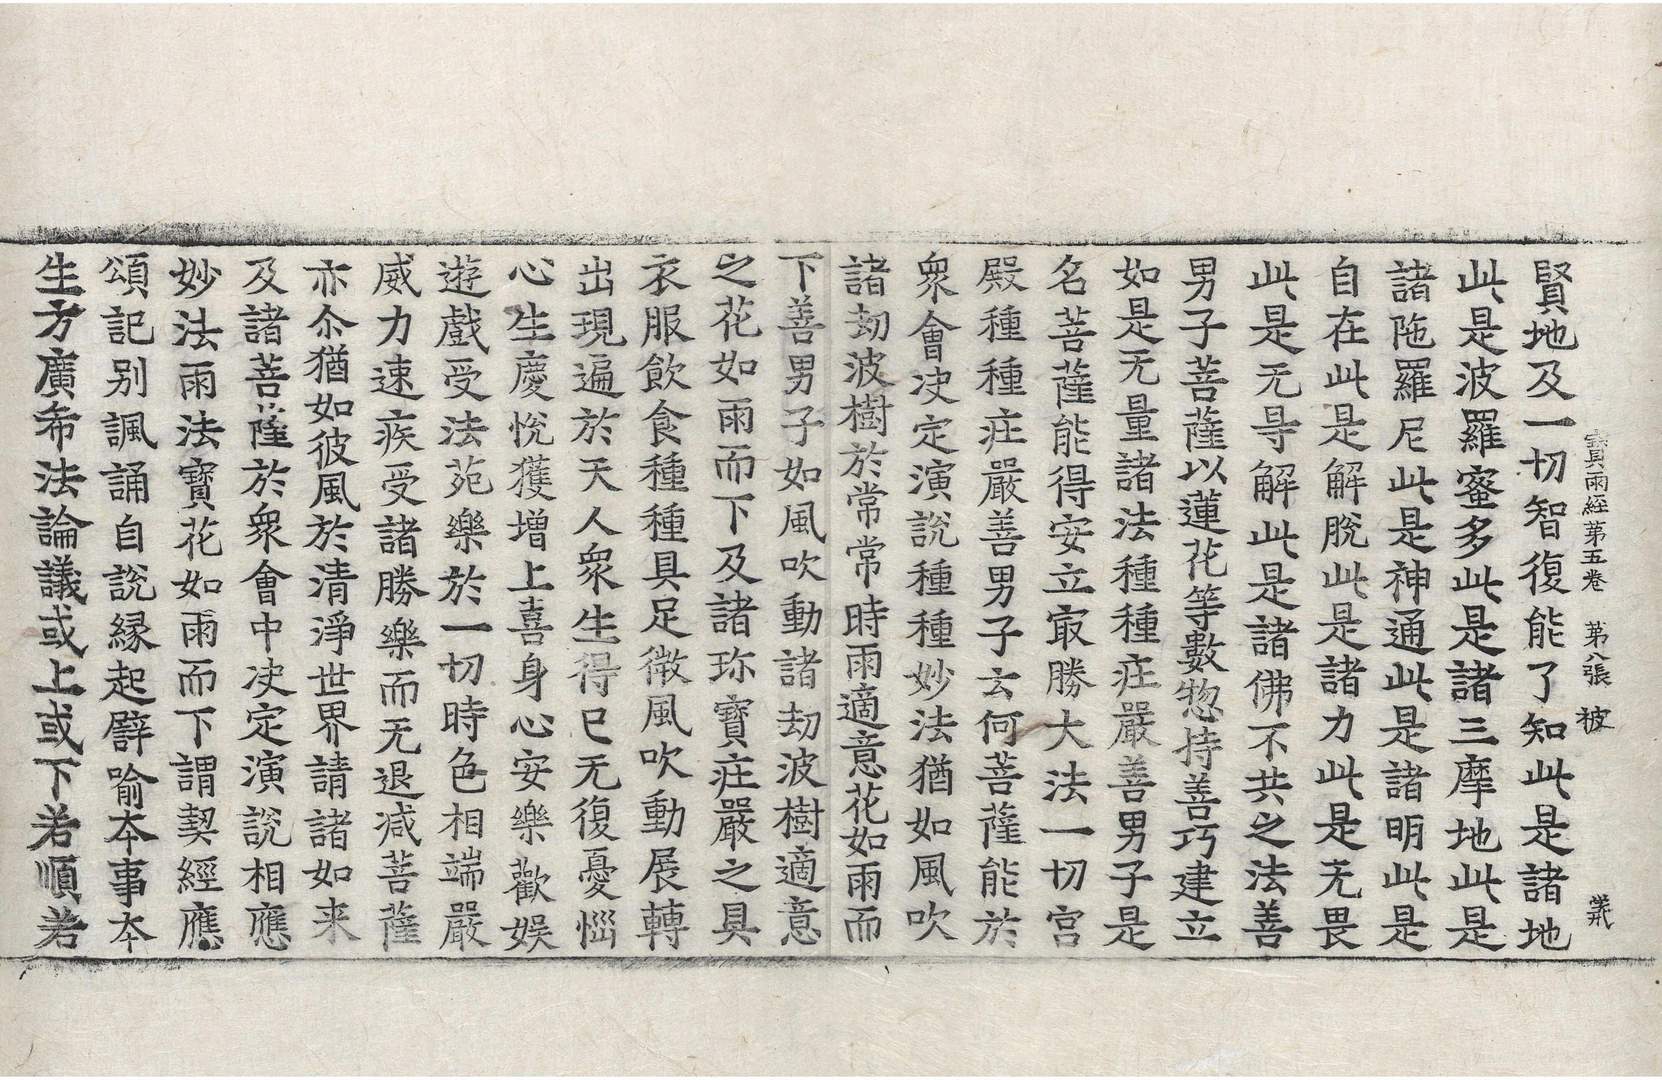 寶雨經第五卷 第八張 被
賢地及一切智復能了知此是諸地
此是波羅蜜多此是諸三摩地此是
諸陁羅尼此是神通此是諸明此是
自在此是解脫此是諸力此是无畏
此是无㝵解此是諸佛不共之法善
男子菩薩以蓮花等數惣持善巧建立
如是无量諸法種種㽵嚴善男子是
名菩薩能得安立㝡勝大法一切宮
殿種種㽵嚴善男子云何菩薩能於
衆會决定演說種種妙法猶如風吹
諸劫波樹於常常時雨適意花如雨而
下善男子如風吹動諸劫波樹適意
之花如雨而下及諸珎寶㽵嚴之具
衣服飮食種種具足微風吹動展轉
出現遍於天人衆生得已无復憂惱
心生慶悅獲增上喜身心安樂歡娛
遊戲受法苑樂於一切時色相端嚴
威力速疾受諸勝樂而无退減菩薩
亦尒猶如彼風於清淨世界請諸如来
及諸菩薩於衆會中决定演說相應
妙法雨法寶花如雨而下謂契經應
頌記别諷誦自說縁起譬喻夲事夲
生方廣希法論議或上或下若順若